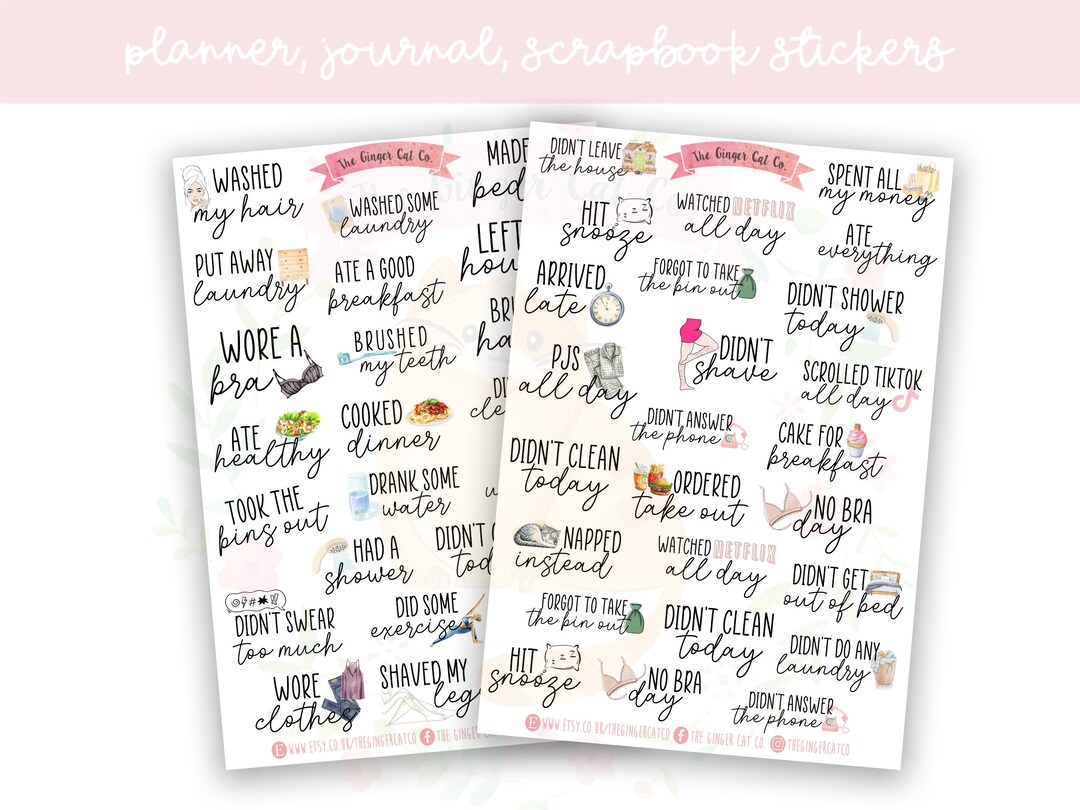 planner, journal, scrapbook stickers
The Ginger Cat Co.
WASHED
my hair
WASHED SOME
laundry
MADE
bed
PUT AWAY
laundry
ATE A GOOD
breakfast
LEFT
hou
WORE A
bra
BRUSHED
my teeth
BR
ha
ATE
healthy
COOKED
dinner
DI
cle
TOOK THE
bins out
DRANK SOME
water
HAD A
shower
DIDN'T
tod
@#!
DIDN'T SWEAR
too much
DID SOME
exercise
WORE
clothes
SHAVED MY
leg
WWW.ETSY.CO.UK/THEGINGERCATCO
THE GINGER CAT CO.
The Ginger Cat Co.
DIDN'T LEAVE
the house
SPENT ALL
my money
HIT
snooze
WATCHED NETFLIX
all day
ATE
everything
ARRIVED
late
FORGOT TO TAKE
the bin out
DIDN'T SHOWER
today
PJS
all day
DIDN'T
shave
SCROLLED TIKTOK
all day
DIDN'T ANSWER
the phone
CAKE FOR
breakfast
DIDN'T CLEAN
today
ORDERED
take out
NO BRA
day
NAPPED
instead
WATCHED NETFLIX
all day
DIDN'T GET
out of bed
FORGOT TO TAKE
the bin out
DIDN'T CLEAN
today
DIDN'T DO ANY
laundry
HIT
snooze
NO BRA
day
DIDN'T ANSWER
the phone
WWW.ETSY.CO.UK/THEGINGERCATCO
THE GINGER CAT CO.
THEGINGERCATCO